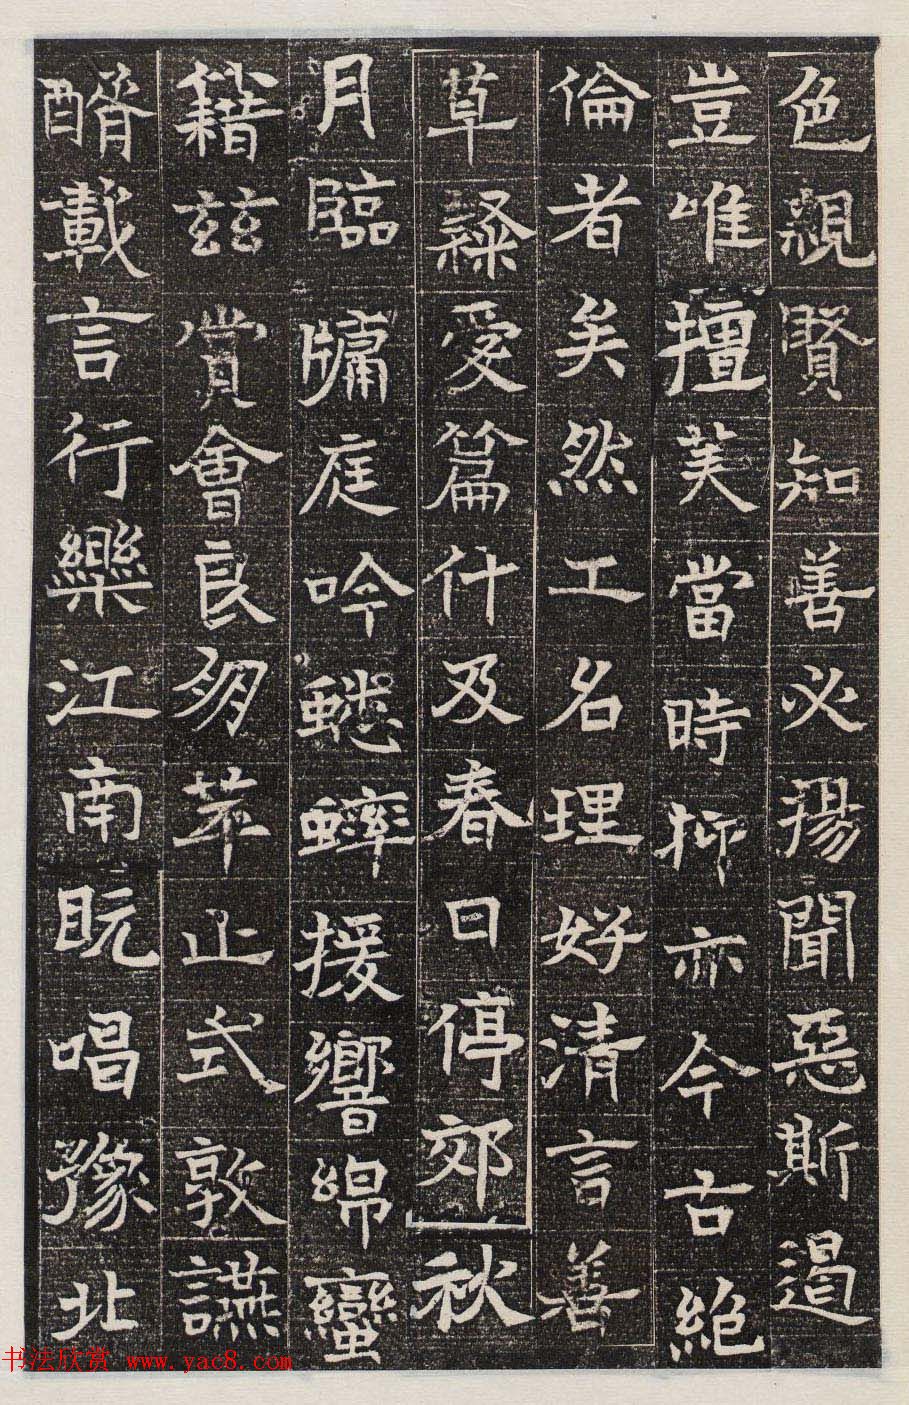 色親賢知善必揚聞惡斯遏
豈唯擅美當時抑亦今古絕
倫者矣然工名理好清言善
草隸愛篇什及春日停郊秋
月臨牖庭吟蟋蟀援響綿蠻
籍茲賞會良朋萃止式敦讌
醑載言行樂江南既唱豫北
书法欣赏 www.yac8.com